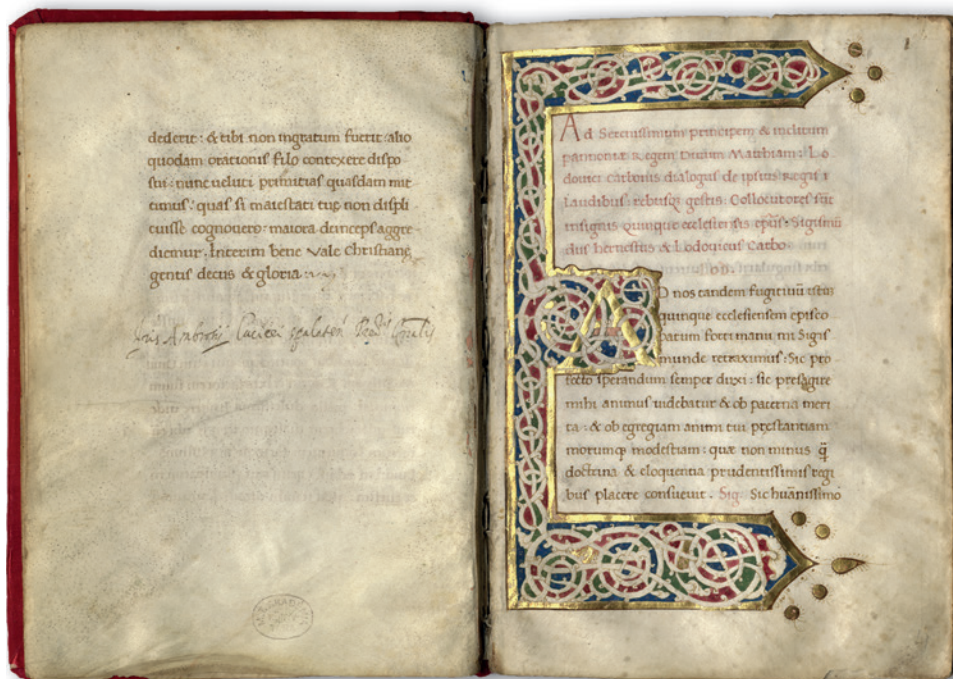 dederit: & tibi non ingratum fuerit: alio
quodam orationis filo contexere dispo
sui: nunc ueluti primitias quasdam mit
timus: quas si maiestati tuę non displi
cuisse cognouero: maiora deinceps aggre
diemur. Interim bene uale Christianę
gentis decus & gloria:
Ambrosij
Ad Serenissimum principem & inclitum
pannoniæ Regem Diuum Mathiam: Lo
douici Carbonis dialogus de ipsius Regis
laudibus: rebusq; gestis: Collocutores sūt
insignis quinque ecclesiensis ep̄us: Sigismū
dus hernestus & Lodouicus Carbo
AD nos tandem fugitiuū istū
quinque ecclesiensem episco
patum forti manu mi Sigis
munde retraximus: Sic pro
fecto sperandum semper duxi: sic presagire
mihi animus uidebatur & ob paterna meri
ta: & ob egregiam animi tui pręstantiam
morumq; modestiam: quæ non minus q̄
doctrina & eloquentia prudentissimis regi
bus placere consueuit. Sig. Sic huānissimo